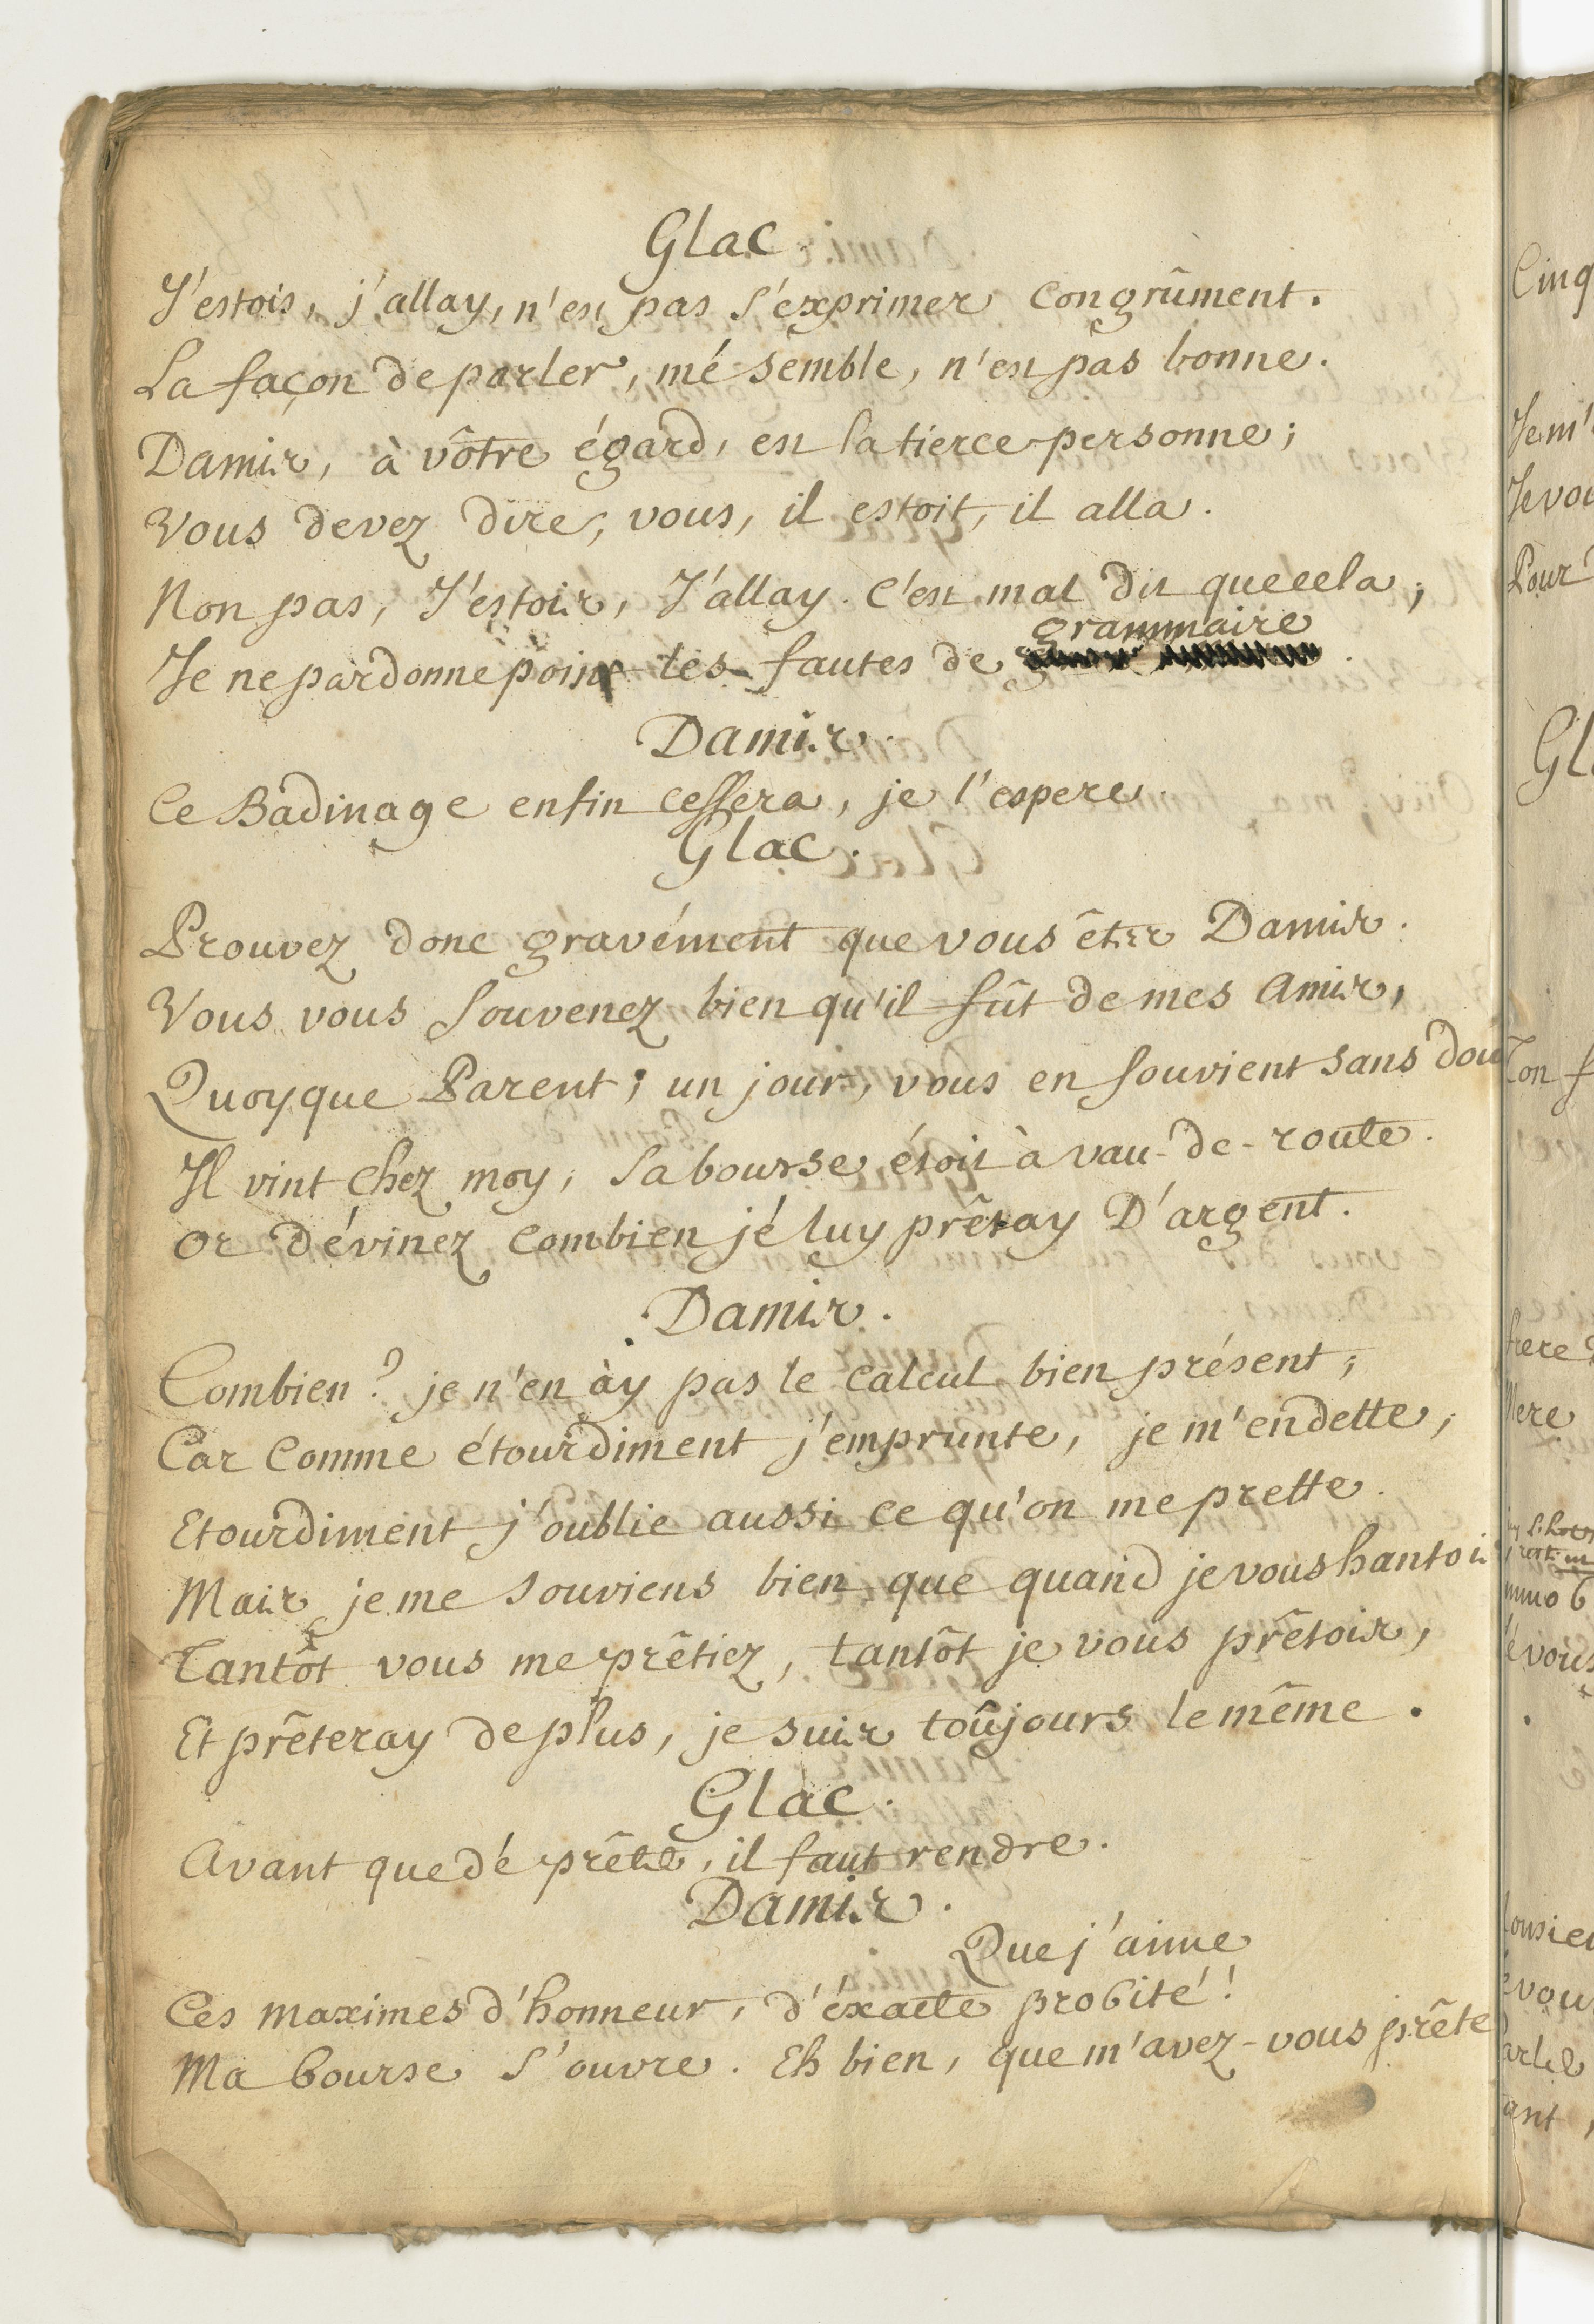 Glac
J'estois, j'allay, n'est pas s'exprimer congrûment.
La façon de parler, mé semble, n'est pas bonne.
Damis, à vôtre égard, est la tierce personne;
Vous devez dire, vous, il estoit, il alla.
Non pas, J'estois, J'allay. C'est mal dit que cela;
grammaire
Je ne pardonne point les fautes de
Damis.
Ce Badinage enfin cessera, je l'espere.
Glac.
Prouvez donc gravément que vous êtes Damis.
Vous vous souvenez bien qu'il fût de mes amis,
Quoyque Parent; un jour, vous en souvient sans dou
Il vint chez moy, sa bourse étoit à vau-de-route.
Or dévinez combien jé luy prêtay D'argent.
Damis.
Combien? je n'en ay pas le calcul bien présent;
Car comme étourdiment j'emprunte, je m'endette;
Etourdiment j'oublie aussi ce qu'on me prette.
Mais je me souviens bien que quand je vous hantois
Tantôt vous me prêtiez, tantôt je vous prêtois,
Et prêteray de plus, je suis toûjours le même.
Glac.
Avant que dé prêter, il faut rendre.
Damis.
Que j'aime
Ces maximes d'honneur, d'éxacte probité!
Ma bourse s'ouvre. Eh bien, que m'avez-vous prêté
Cinq
Je m'
Je vou
Pour
Gl
Ton f
frere
Mere
é vous
vou
ant,